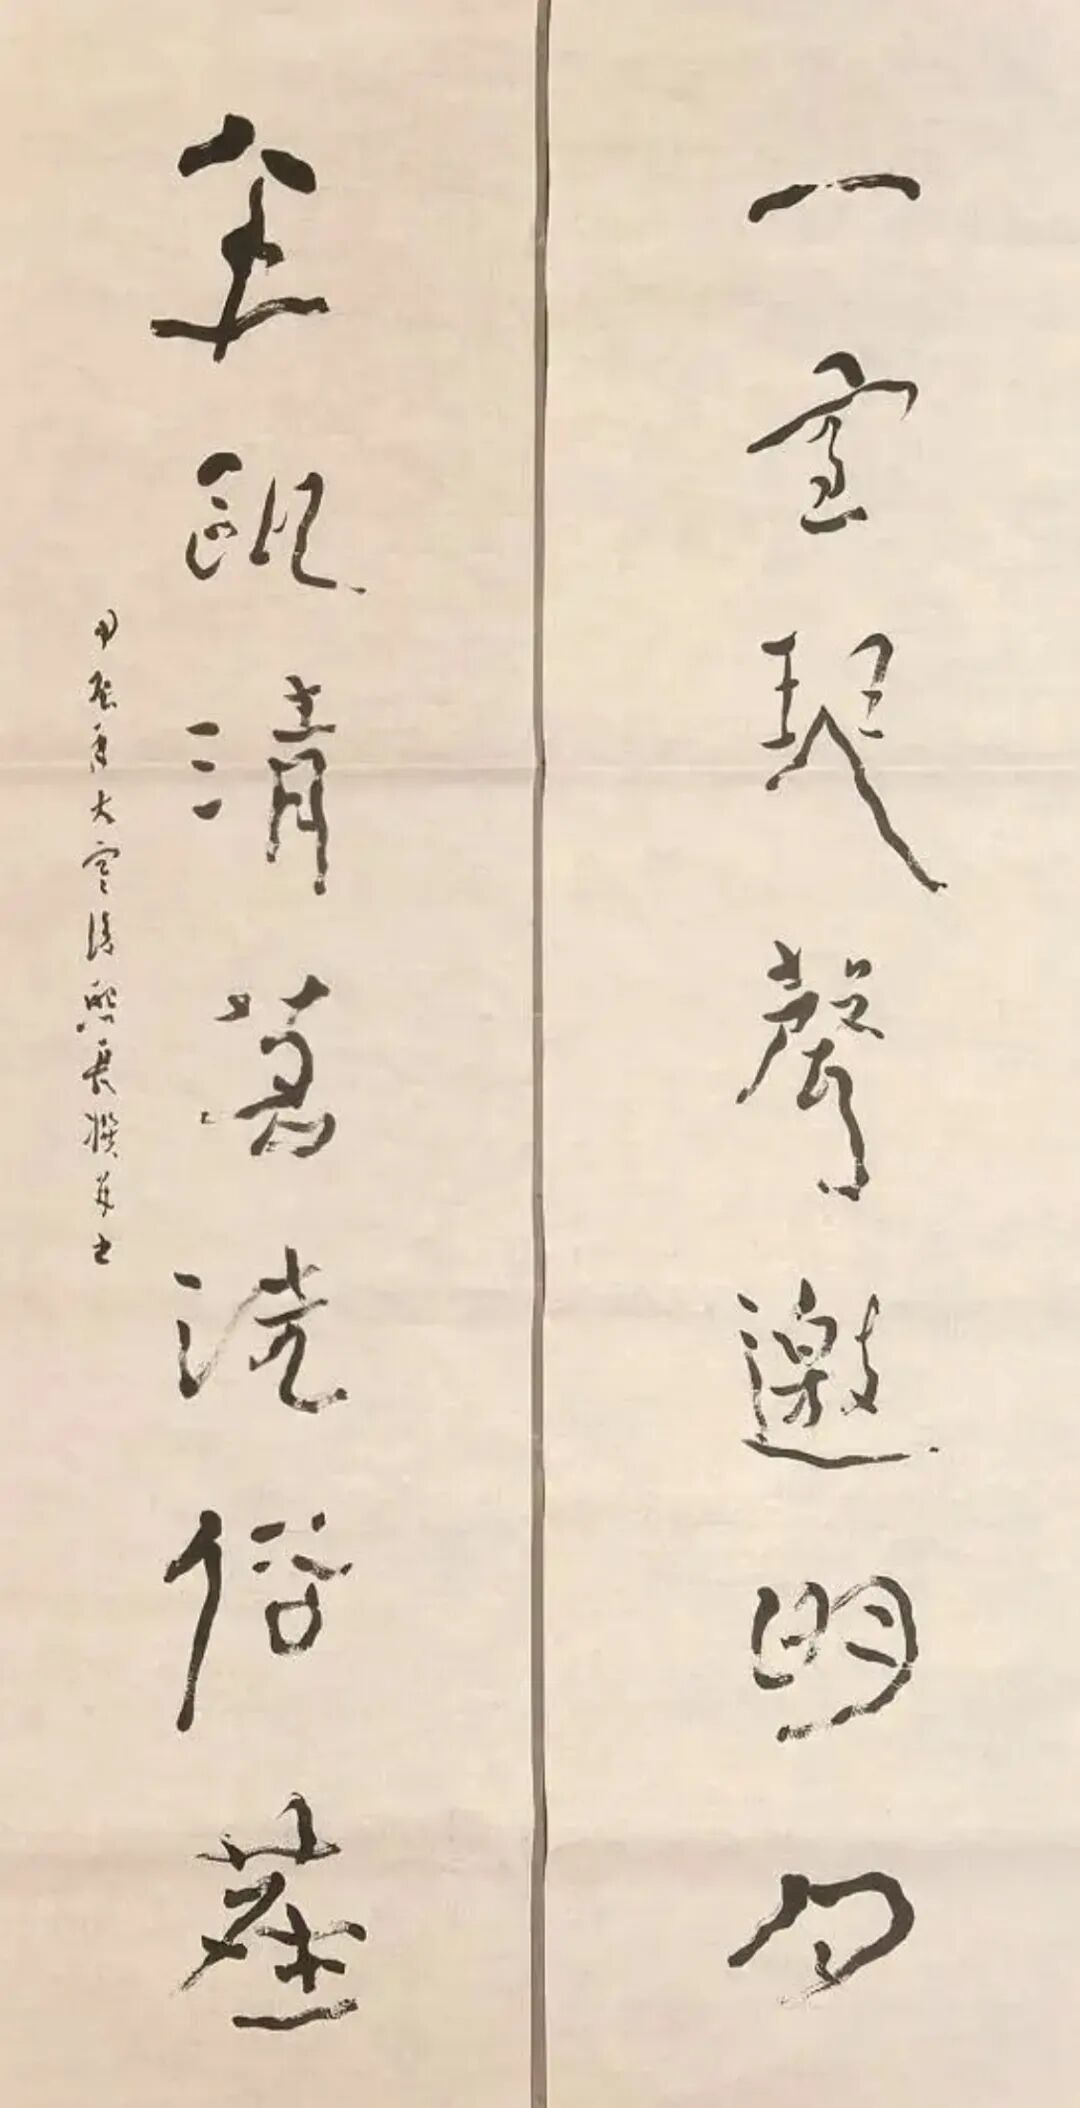 一室琴聲邀明月
金甌清茗洗俗塵
甲辰年大寒後熙長撰并书